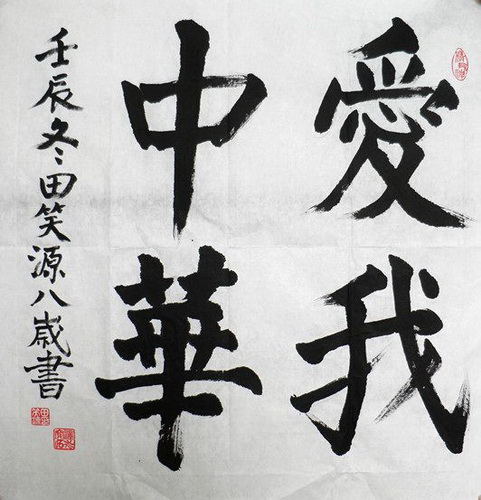 愛我
中華
壬辰冬田笑源八歲書